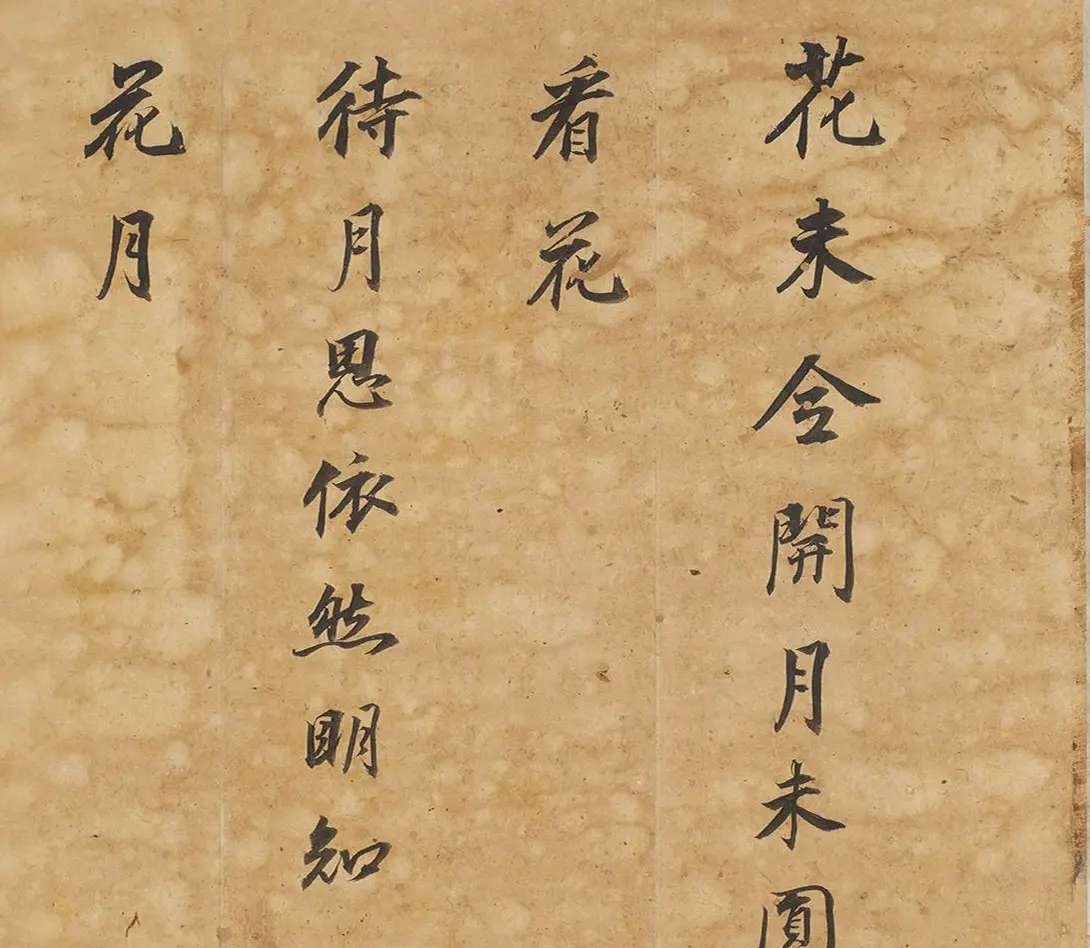 花未全開月未圓
看花
待月思依然明知
花月